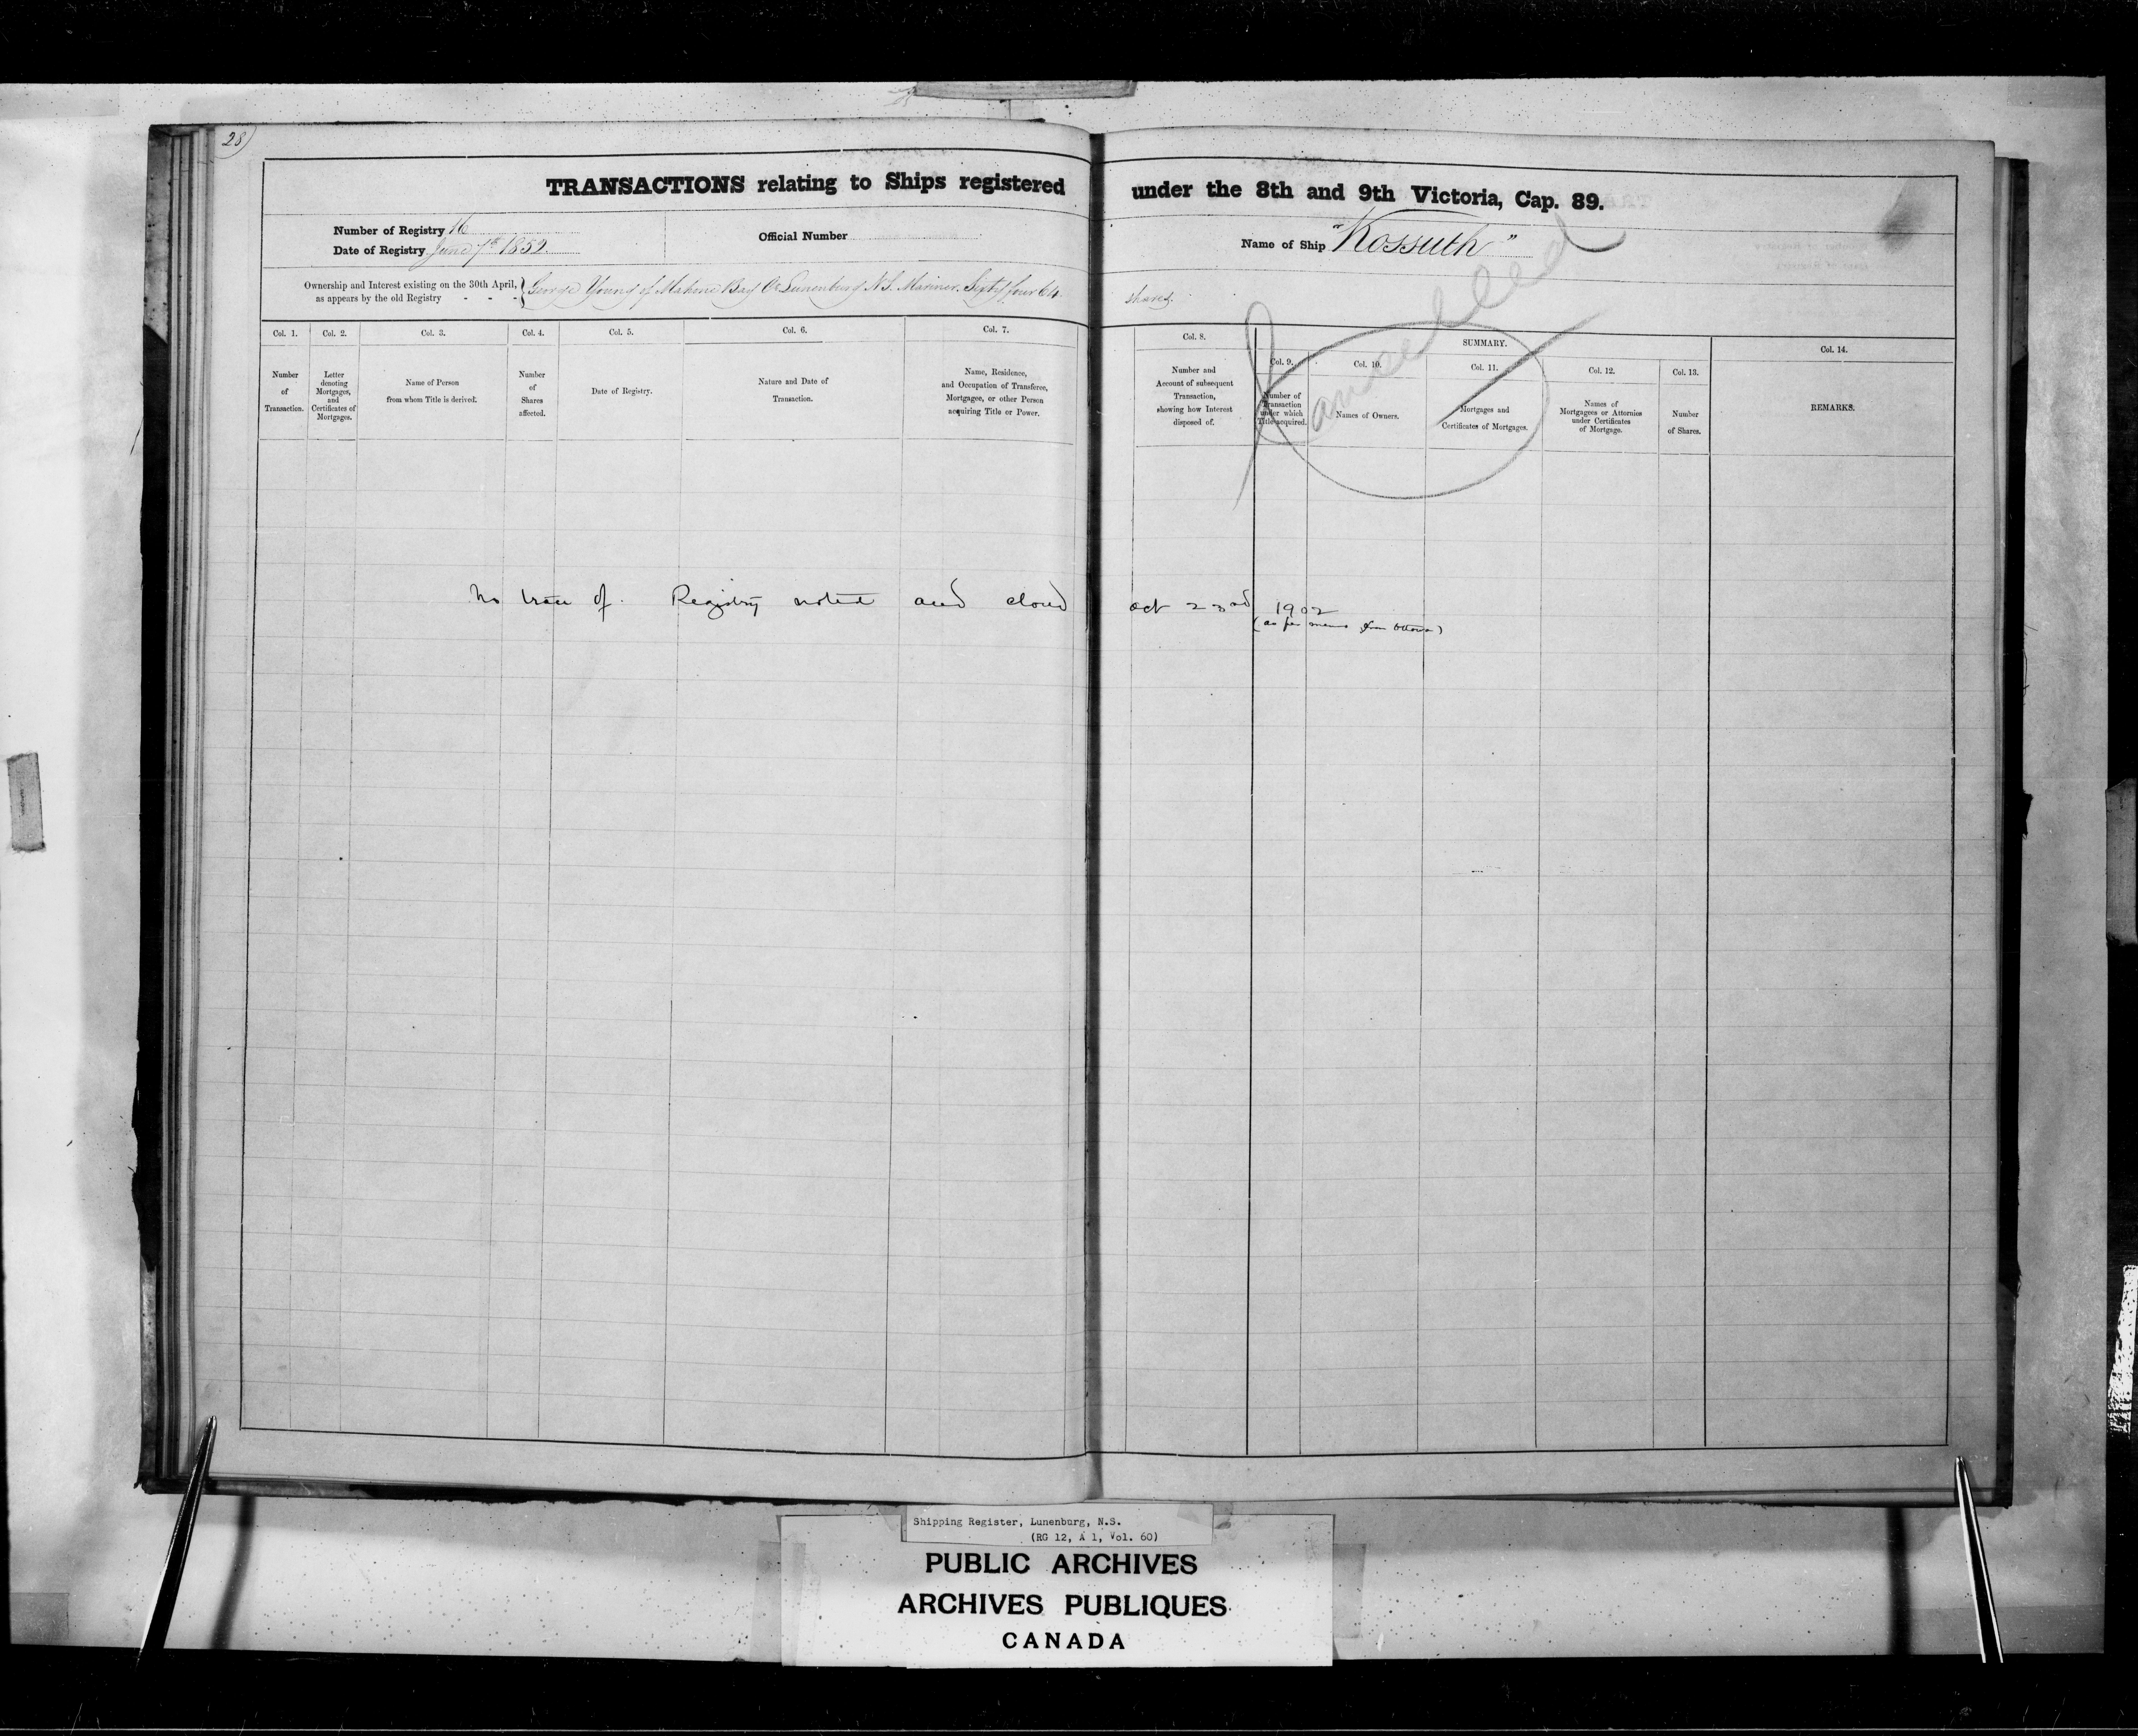 28
TRANSACTIONS relating to Ships registered under the 8th and 9th Victoria, Cap. 89.
Number of Registry 16
Date of Registry June 7th 1852
Official Number
Name of Ship "Kossuth"
Cancelled
Ownership and Interest existing on the 30th April, as appears by the old Registry - - - George Young of Mahone Bay Co Lunenburg N.S. Mariner. Sixty four 64 shares.
Col. 1.
Number of Transaction.
Col. 2.
Letter denoting Mortgages, and Certificates of Mortgages.
Col. 3.
Name of Person from whom Title is derived.
Col. 4.
Number of Shares affected.
Col. 5.
Date of Registry.
Col. 6.
Nature and Date of Transaction.
Col. 7.
Name, Residence, and Occupation of Transferee, Mortgagee, or other Person acquiring Title or Power.
Col. 8.
Number and Account of subsequent Transaction, showing how Interest disposed of.
SUMMARY.
Col. 9.
Number of Transaction under which Title acquired.
Col. 10.
Names of Owners.
Col. 11.
Mortgages and Certificates of Mortgages.
Col. 12.
Names of Mortgagees or Attornies under Certificates of Mortgage.
Col. 13.
Number of Shares.
Col. 14.
REMARKS.
No trace of. Registry noted and closed Oct 23rd 1902
(as per memo from Ottawa)
Shipping Register, Lunenburg, N.S.
(RG 12, A 1, Vol. 60)
PUBLIC ARCHIVES
ARCHIVES PUBLIQUES
CANADA